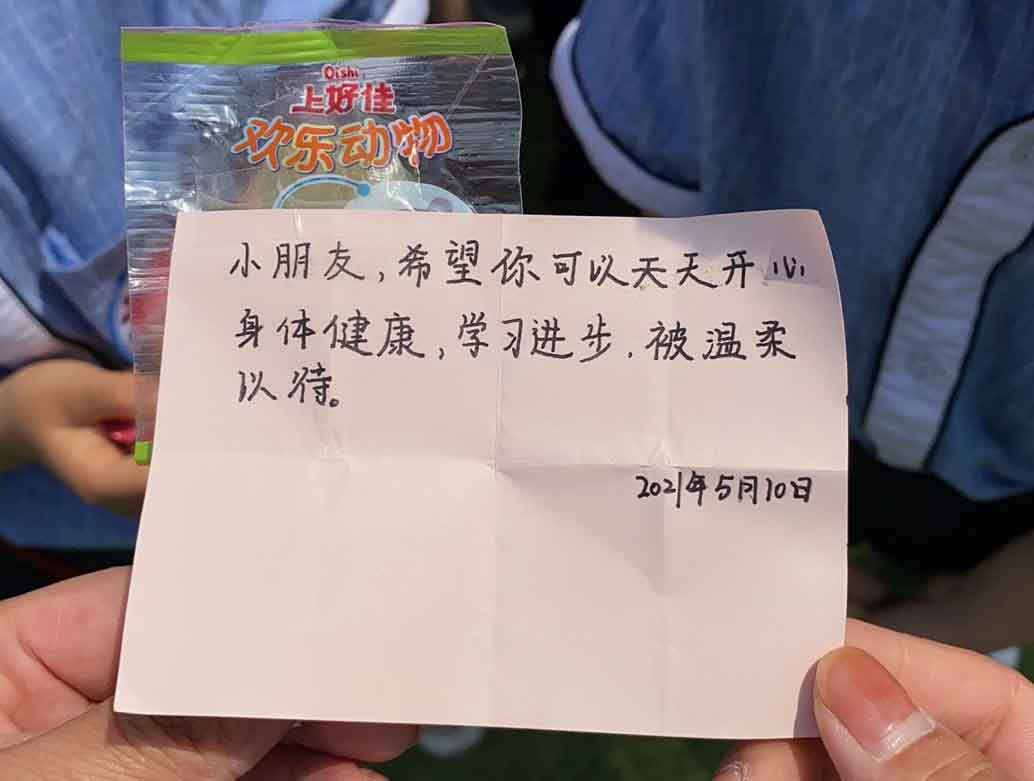 Oishi
上好佳
欢乐动物
小朋友,希望你可以天天开心
身体健康,学习进步.被温柔
以待。
2021年5月10日